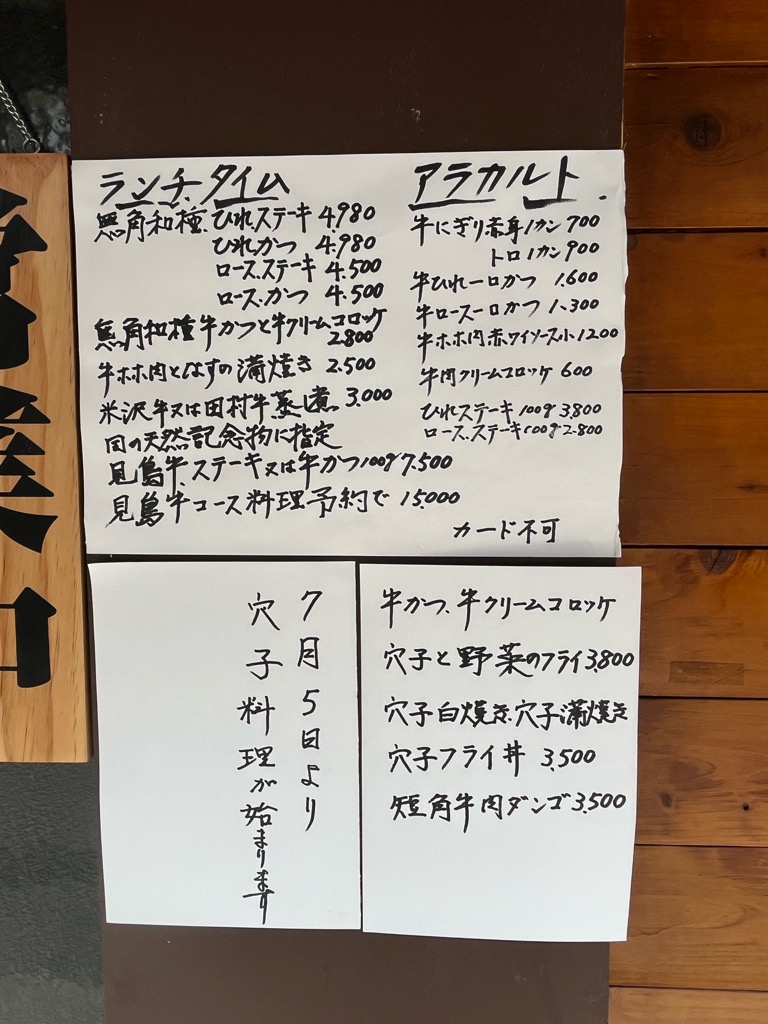 ランチタイム
無角和種 ひれステーキ 4,980
ひれかつ 4,980
ロースステーキ 4,500
ロースかつ 4,500
無角和種牛かつと牛クリームコロッケ
2,800
牛ホホ肉とはすの蒲焼き 2,500
米沢牛又は田村牛蒸し煮 3,000
国の天然記念物に指定
見島牛ステーキ又は牛かつ100g 7,500
見島牛コース料理予約で 15,000
アラカルト
牛にぎり赤身1カン 700
トロ1カン 900
牛ひれ一口かつ 1,600
牛ロース一口かつ 1,300
牛ホホ肉赤ワイソース小1200
牛肉クリームコロッケ 600
ひれステーキ100g 3,800
ロースステーキ100g 2,800
カード不可
7月5日より
穴子料理が始まります
牛かつ、牛クリームコロッケ
穴子と野菜のフライ3,800
穴子白焼き、穴子蒲焼き
穴子フライ丼 3,500
短角牛肉ダンゴ3,500